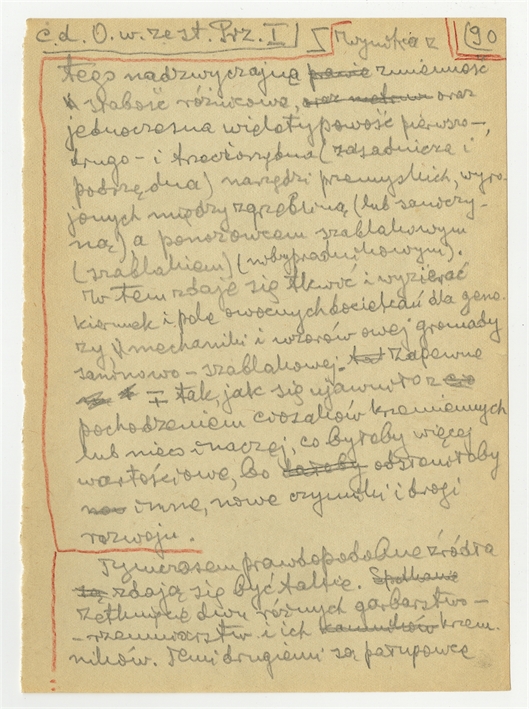 c.d. O. w. zest. Prz. I Wynika z 90
tego nadzwyczajna prawie zmienność
i słabość różnicowa, oraz
jednoczesna wielotypowość pierwszo-,
drugo- i trzeciorzędna (zasadnicza i
podrzędna) narzędzi przemyskich, wyro-
jonych między zgrzebliną (lub
) a ponożowcem szablakowym
(szablakiem) ( ).
W tem zdaje się tkwić i wyzierać
kierunek i pole owocnych dociekań dla geno-
zy i mechaniki i wzorów owej gromady
- szablakowej. Zapewne
tak, jak się ujawniło z
pochodzeniem ciosaków krzemiennych
lub nieco inaczej, co byłoby więcej
wartościowe, bo odsłaniałoby
inne, nowe czynniki i drogi
rozwoju.
Tymczasem prawdopodobne źródła
są zdają się być takie. Spotkanie
Zetknięcie dwu różnych garbarstwo-
-rzemniarstw i ich krzem.
ników. Temi drugiemi są